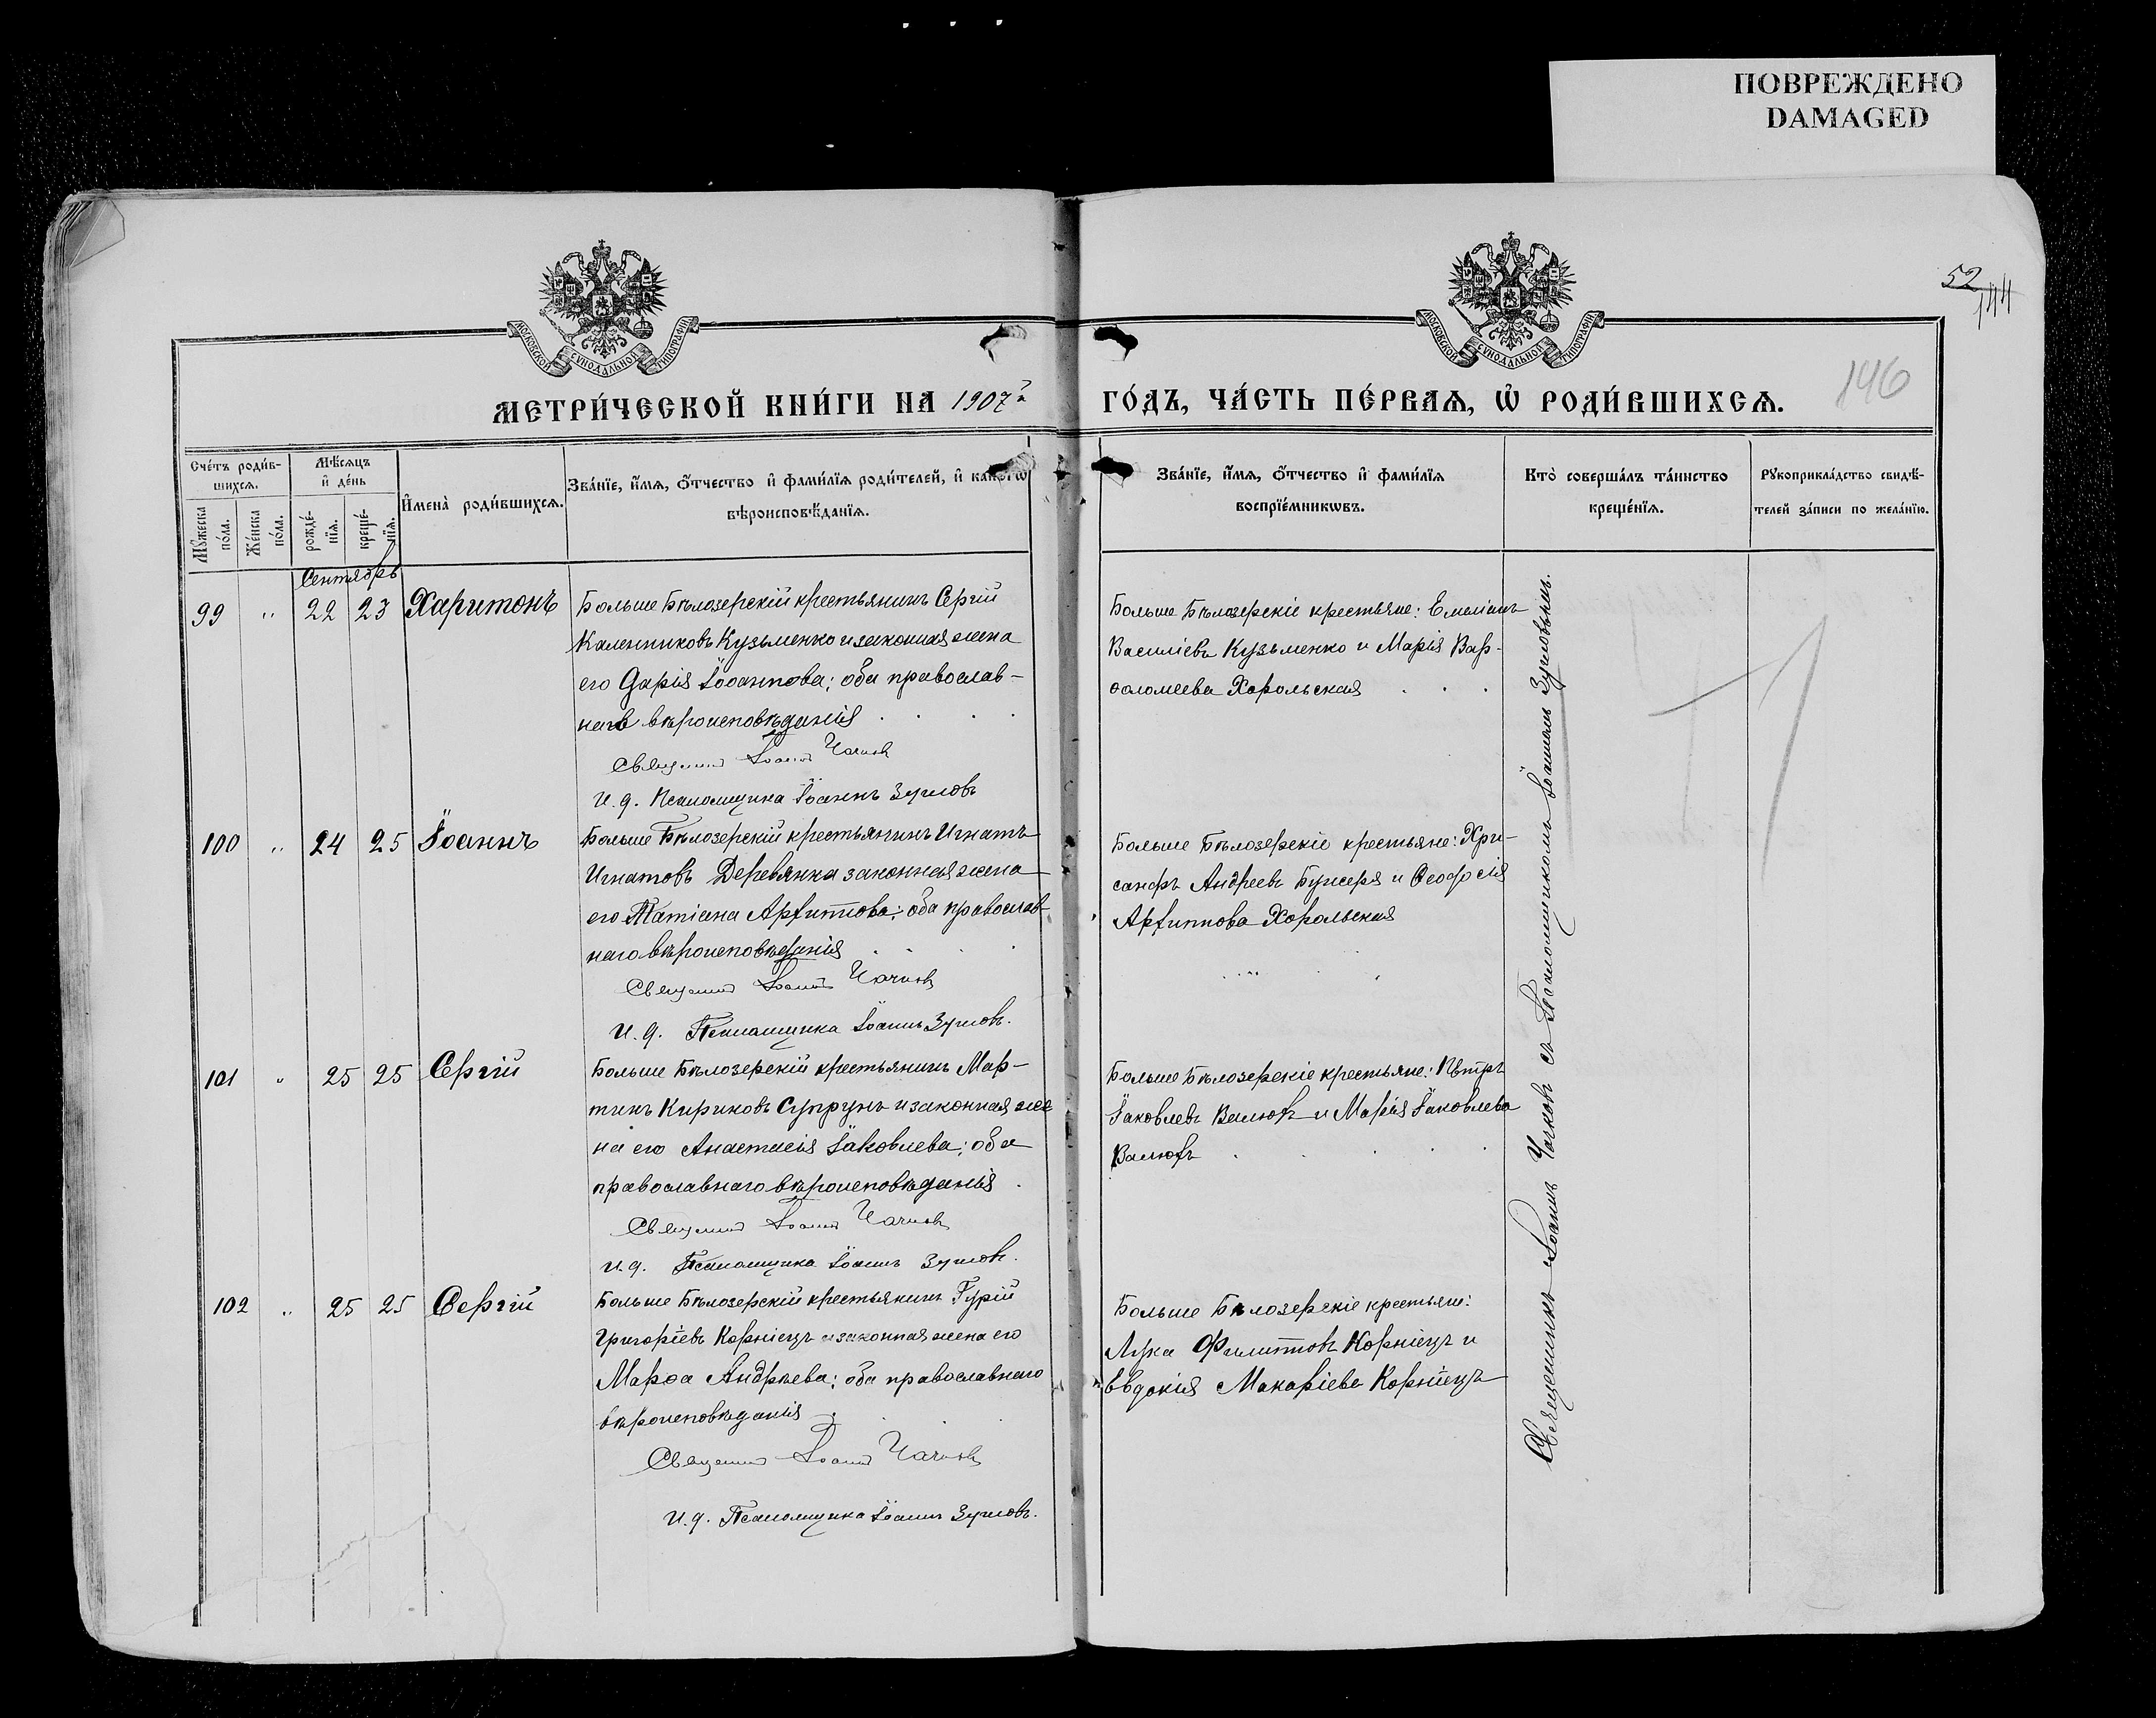 ПОВРЕЖДЕНО
DAMAGED
52
144
146
МОСКОВСКОЙ СѴНОДАЛЬНОЙ ТИПОГРАФІИ
МОСКОВСКОЙ СѴНОДАЛЬНОЙ ТИПОГРАФІИ
МЕТРИ́ЧЕСКОЙ КНИ́ГИ НА 1907й
ГО́ДЪ, ЧА́СТЬ ПЕ́РВАЯ, Ѡ РОДИ́ВШИХСЯ.
Сче́тъ роди́в-
шихся.
Мꙋжеска по́ла.
Же́нска по́ла.
Мѣ́сяцъ и де́нь
рожде́-
нїя.
креще́-
нїя.
Имена̀ роди́вшихся.
Зва́нїе, и́мя, ѻ́тчество и фами́лїя роди́телей, и како́гѡ
вѣроисповѣ́данїя.
Зва́нїе, и́мя, ѻ́тчество и фами́лїя
воспрїе́мникѡвъ.
Кто̀ соверша́лъ та́инство
креще́нїя.
Рꙋкоприкла́дство свидѣ́-
телей за́писи по жела́нїю.
Сентябрь
99 " 22 23 Харитонъ
Больше Бѣлозерскій крестьянинъ Сергій
Каленниковъ Кузьменко и законная жена
его Дарія Іоаннова; оба православ-
наго вѣроисповѣданія
Священникъ Іоаннъ Чачковъ
И. д. Псаломщика Іоаннъ Зуиловъ
Больше Бѣлозерскіе крестьяне: Емеліанъ
Василіевъ Кузьменко и Марія Вар-
ѳоломеева Хорольская
100 " 24 25 Іоаннъ
Больше Бѣлозерскій крестьянинъ Игнатъ
Игнатовъ Деревянка законная жена
его Татіана Архиппова; оба православ-
наго вѣроисповѣданія
Священникъ Іоаннъ Чачковъ
И. д. Псаломщика Іоаннъ Зуиловъ.
Больше Бѣлозерскіе крестьяне: Хри-
санфъ Андреевъ и Ѳеодосія
Архиппова Хорольская
101 " 25 25 Сергій
Больше Бѣлозерскій крестьянинъ Мар-
тинъ Кириковъ Супрунъ и законная же
на его Анастасія Іаковлева; оба
православнаго вѣроисповѣданія
Священникъ Іоаннъ Чачковъ
И. д. Псаломщика Іоаннъ Зуиловъ.
Больше Бѣлозерскіе крестьяне: Петръ
Іаковлевъ Валюхъ и Марія Іаковлева
Валюхъ
102 " 25 25 Сергій
Больше Бѣлозерскій крестьянинъ Гурій
Григоріевъ Корніецъ и законная жена его
Марѳа Андреева; оба православнаго
вѣроисповѣданія
Священникъ Іоаннъ Чачковъ
И. д. Псаломщика Іоаннъ Зуиловъ.
Больше Бѣлозерскіе крестьяне:
Лука Филипповъ Корніецъ и
Евдокія Макаріева Корніецъ
Священникъ Іоаннъ Чачковъ съ Псаломщикомъ Іоанномъ Зуиловымъ.